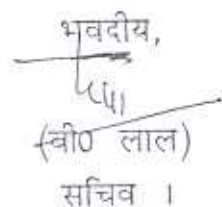 भवदीय,
(वी0 लाल)
सचिव ।